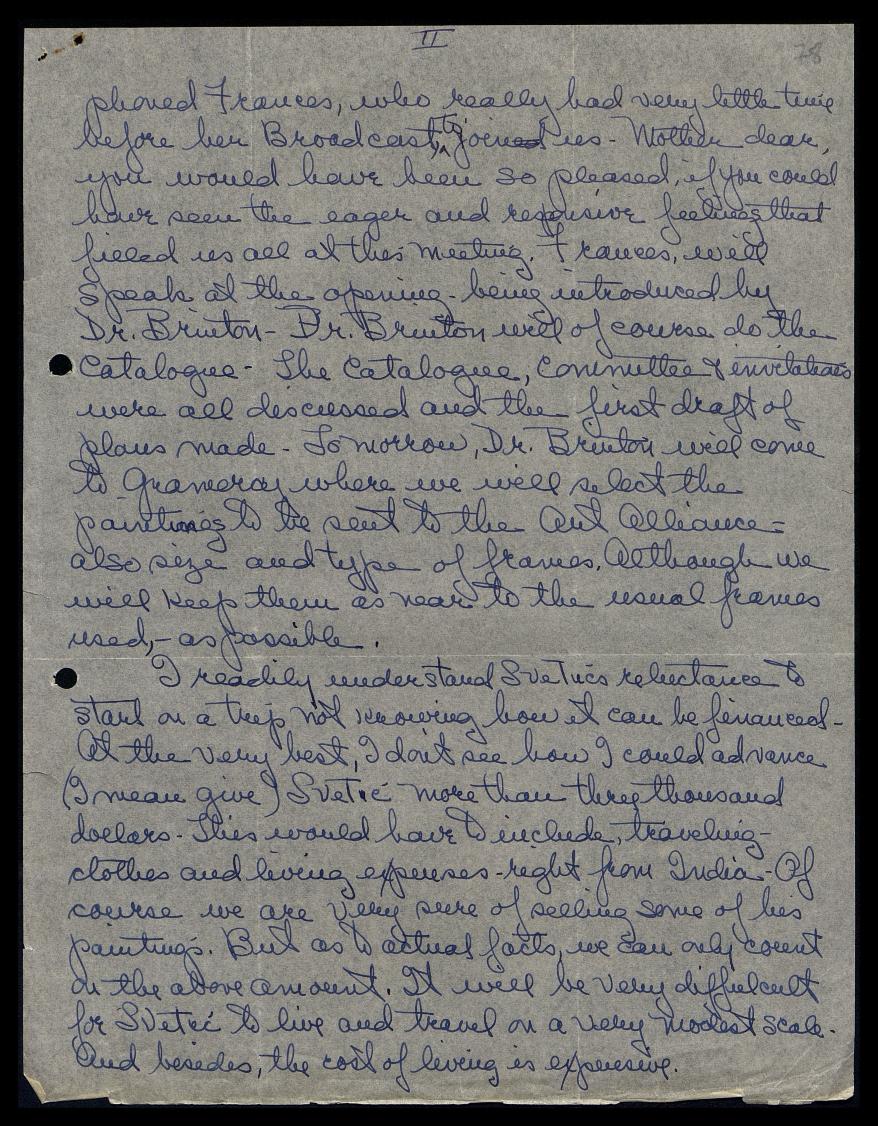 II
78
phoned Frances, who really had very little time
before her Broadcast, to join us - Mother dear,
you would have been so pleased, if you could
have seen the eager and responsive feelings that
filled us all at this meeting. Frances, will
speak at the opening - being introduced by
Dr. Brinton - Dr. Brinton will of course do the
Catalogue - The Catalogue, Committee & invitations
were all discussed and the first draft of
plans made - Tomorrow, Dr. Brinton will come
to Gramercy where we will select the
paintings to be sent to the Art Alliance =
also size and type of frames. Although we
will keep them as near to the usual frames
used, - as possible.
I readily understand Svetic's reluctance to
start on a trip not knowing how it can be financed -
At the very best, I don't see how I could advance
(I mean give) Svetic more than three thousand
dollars - This would have to include, traveling -
clothes and living expenses - right from India - Of
course we are very sure of selling some of his
paintings. But as to actual facts, we can only count
on the above amount. It will be very difficult
for Svetic to live and travel on a very modest scale -
And besides, the cost of living is expensive.